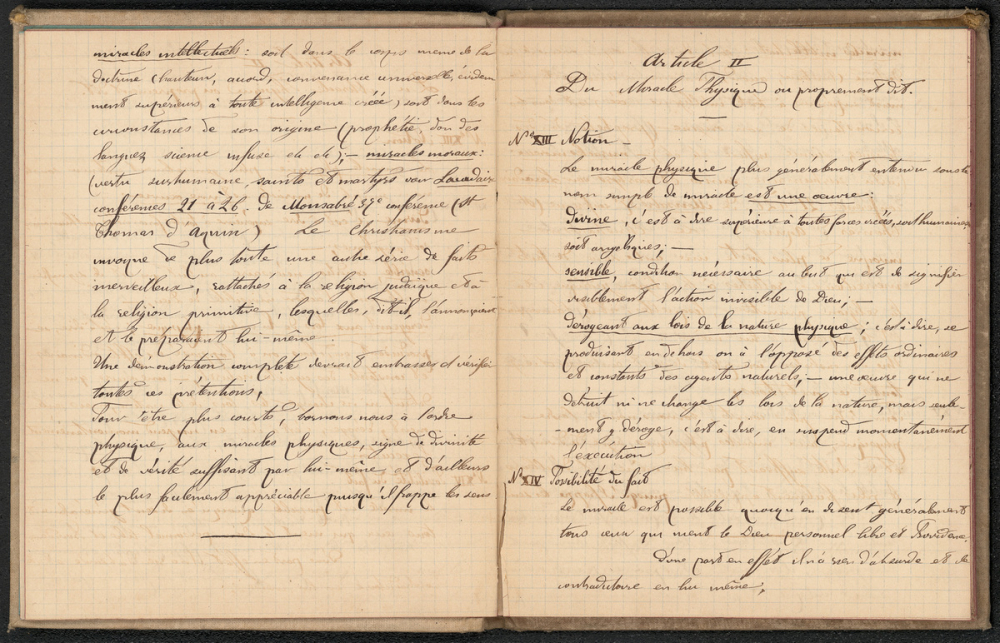 miracles intellectuels : soit dans le corps même de la
doctrine (hauteur, accord, convenance universelle, évidem
ment supérieurs à toute intelligence créée) soit dans les
circonstances de son origine (prophétie, don des
langues science infuse etc etc) ; — miracles moraux :
(vertu surhumaine, saints et martyrs voir Lacordaire
conférences 21 à 26. de Monsabré 37e conférence (St
Thomas d'Aquin) Le Christianisme
invoque de plus toute une autre série de faits
merveilleux, rattachés à la religion judaïque et à
la religion primitive, lesquelles, dit-il, l'annonçaient
et le préparaient lui-même.
Une démonstration complète devrait embrasser et vérifier
toutes ces prétentions,
Pour être plus courts, bornons nous à l'ordre
physique, aux miracles physiques, signe de divinité
et de vérité suffisant par lui-même, et d'ailleurs
le plus facilement appréciable puisqu'il frappe les sens
Article II
Du Miracle Physique ou proprement dit.
No XIII Notion —
Le miracle physique plus généralement entendu sous le
nom simple de miracle est une œuvre :
divine, c'est à dire supérieure à toutes forces créées, soit humaines
soit angéliques ; —
sensible, condition nécessaire au but qui est de signifier
visiblement l'action invisible de Dieu ; —
dérogeant aux lois de la nature physique ; c'est à dire, se
produisant en dehors ou à l'opposé des effets ordinaires
et constants des agents naturels, — une œuvre qui ne
détruit ni ne change les lois de la nature, mais seule-
-ment y déroge, c'est à dire, en suspend momentanément
l'exécution
No XIV Possibilité du fait
Le miracle est possible quoiqu'en disent généralement
tous ceux qui nient le Dieu personnel libre et Providence.
D'une part en effet il n'a rien d'absurde et de
contradictoire en lui même ;